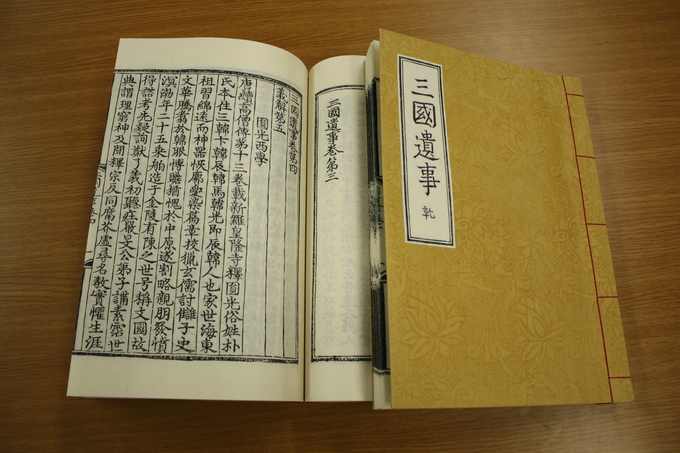 三國遺事
乾
三國遺事卷第三
三國遺事卷第四
義解第五
圓光西學
唐續高僧傳第十三卷載新羅皇隆寺釋圓光俗姓朴
氏本住三韓卞韓辰韓馬韓光即辰韓人也家世海東
祖習綿遠而神器恢廓愛染篇章校獵玄儒討讎子史
文華騰翥於韓服博贍猶愧於中原遂割略親朋發憤
溟渤年二十五乘舶造于金陵有陳之世号稱文國故
得諮考先疑詢猷了義初聽莊嚴旻公弟子講素霑世
典謂理窮神及聞釋宗反同腐芥虛尋名教實懼生涯